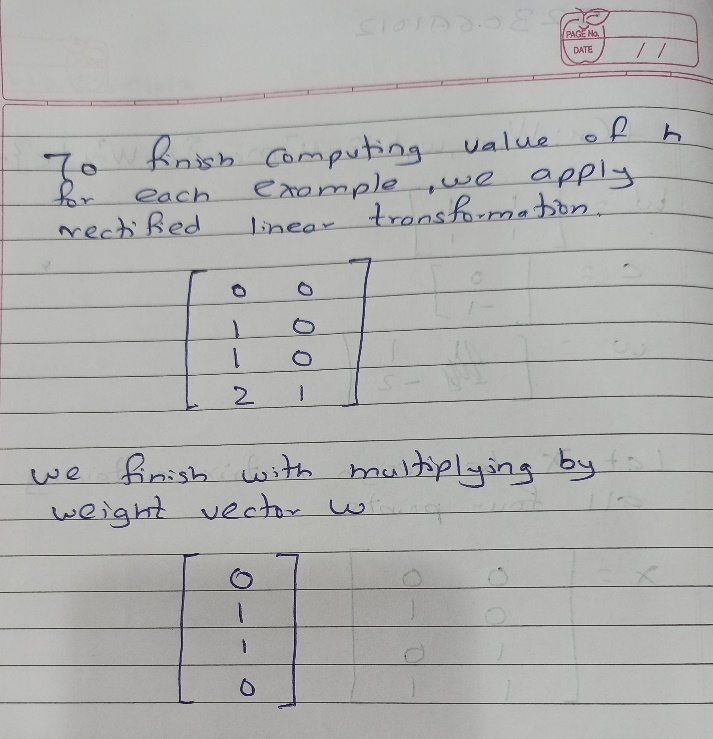 PAGE No.
DATE / /
To finish computing value of h
for each example, we apply
rectified linear transformation.
0 0
1 0
1 0
2 1
we finish with multiplying by
weight vector w
0
1
1
0